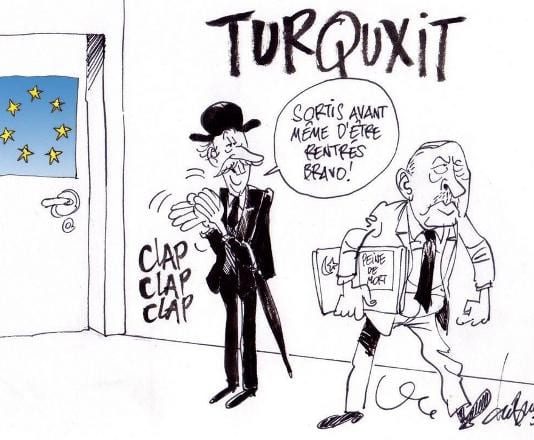 TURQUXIT
SORTIS AVANT
MÊME D'ÊTRE
RENTRÉS
BRAVO!
CLAP
CLAP
CLAP
PEINE
DE
MORT